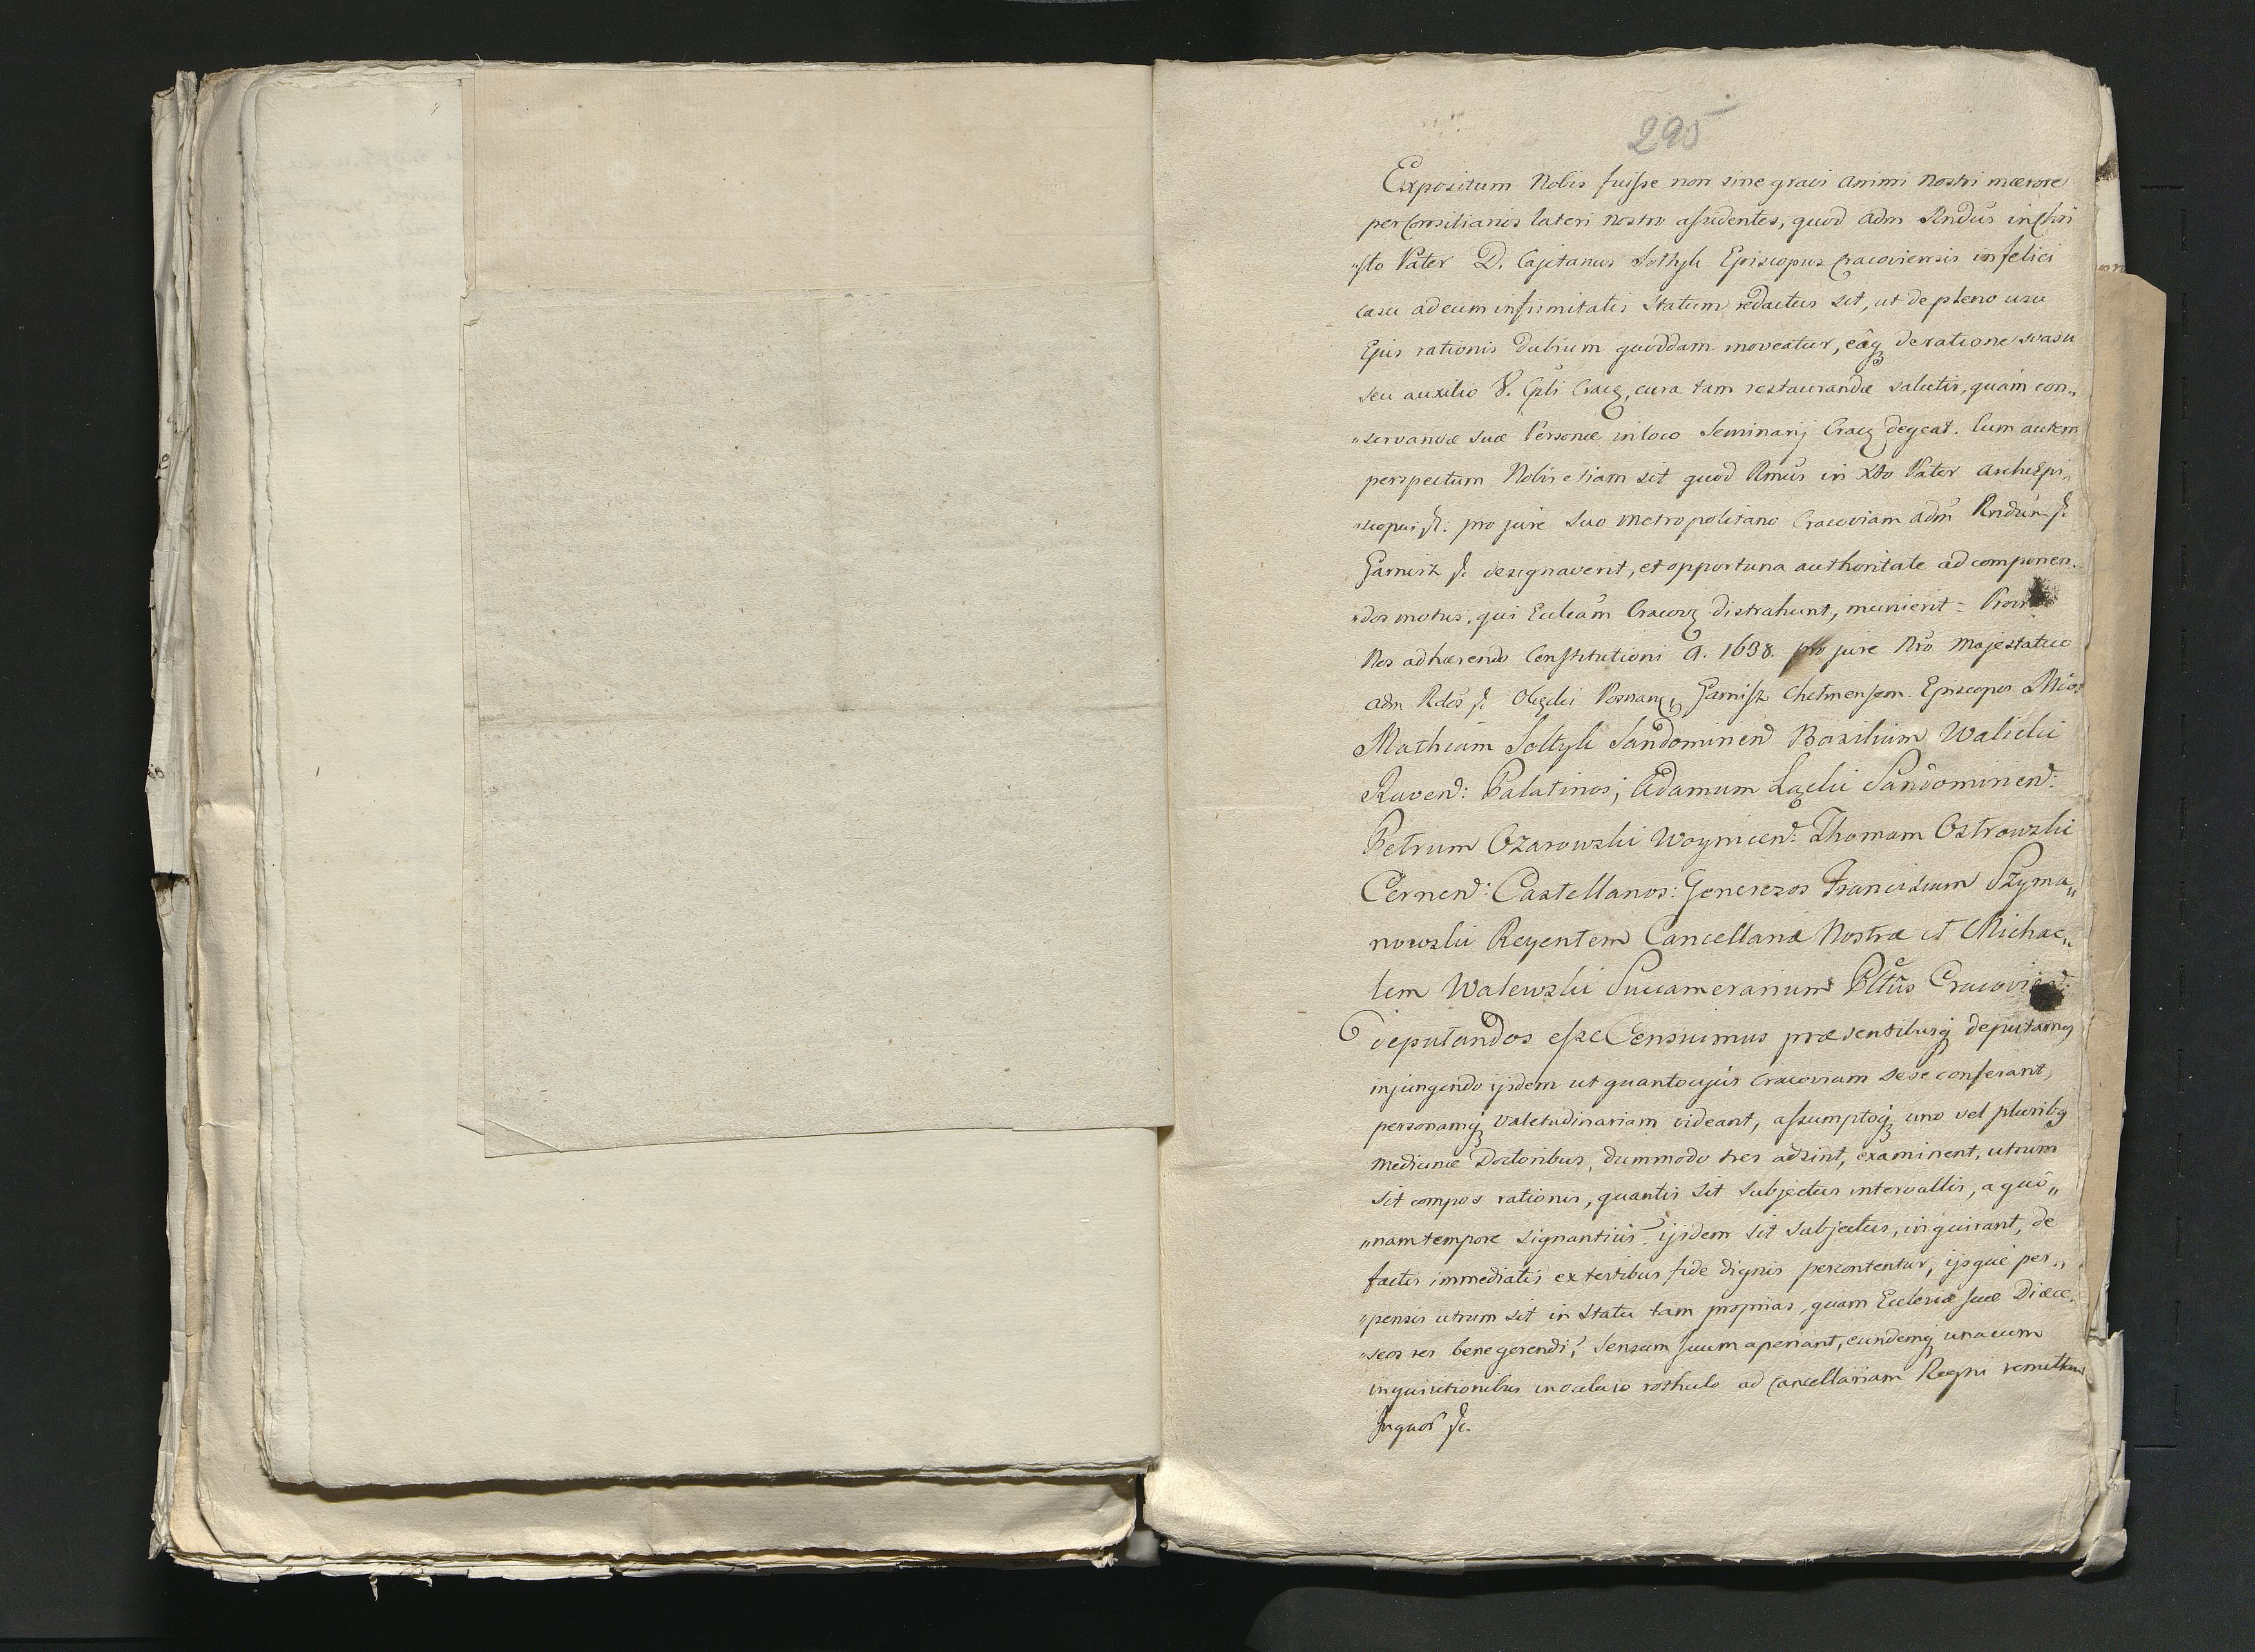 295
Expositum Nobis fuisse non sine gravi animi nostri mærore
per Consiliarios lateri nostro assidentes, quod adm Rndus in Chri
"sto Pater D. Cajetanus Sołtyk Episcopus Cracoviensis infelici
casu ad eum infirmitatis statum redactus sit, ut de pleno usu
Ejus rationis dubium quoddam moveatur, eâq de ratione svasu
seu auxilio V. Cpli Crac, cura tam restaurandæ salutis, quàm con„
"servandæ suæ Personæ in loco Seminarij Crac degeat. Cum autem
perspectum Nobis etiam sit quod Rmus in Xto Pater ArchEpi„
"scopus &. pro jure suo metropolitano Cracoviam adm Rndum &
Garnisz & designaverit, et opportuna authoritate ad componen„
"dos motus, qui Eccleam Cracov distrahunt, munierit =
Nos adhærendo Constitutioni A. 1638. pro jure Nro Majestatico
adm Rdos & Okęcki Posnan, Garnisz Chelmensem. Episcopos
Mathiam Sołtyk Sandomirien Basilium Walicki
Raven: Palatinos; Adamum Łącki Sandomirien:
Petrum Ożarowski Woynicen: Thomam Ostrowski
Cernen: Castellanos: Generosos Franciscum Szyma„
nowski Regentem Cancellariæ Nostræ et Michae„
lem Walewski Succamerarium Pltus Cracovien:
deputandos esse Censuimus præsentibusq deputamq
injungendo ijsdem ut quantocyus Cracoviam sese conferant,
personamq valetudinariam videant, assumptoq uno vel pluribq
medicinæ Doctoribus, dummodo tres adsint, examinent, utrum
sit compos rationis, quantis sit subjectus intervallis, a quô„
"nam tempore signantius ijsdem sit subjectus, inquirant, de
factis immediatis ex testibus fide dignis percontentur, ijsque per„
"pensis utrum sit in statu tam proprias, quam Ecclesiæ suæ Diæce„
"seos res bene gerendi? Sensum suum aperiant, eundemq unacum
inquisitionibus in ocluso rothulo ad Cancellariam Regni remittant
In quor &.